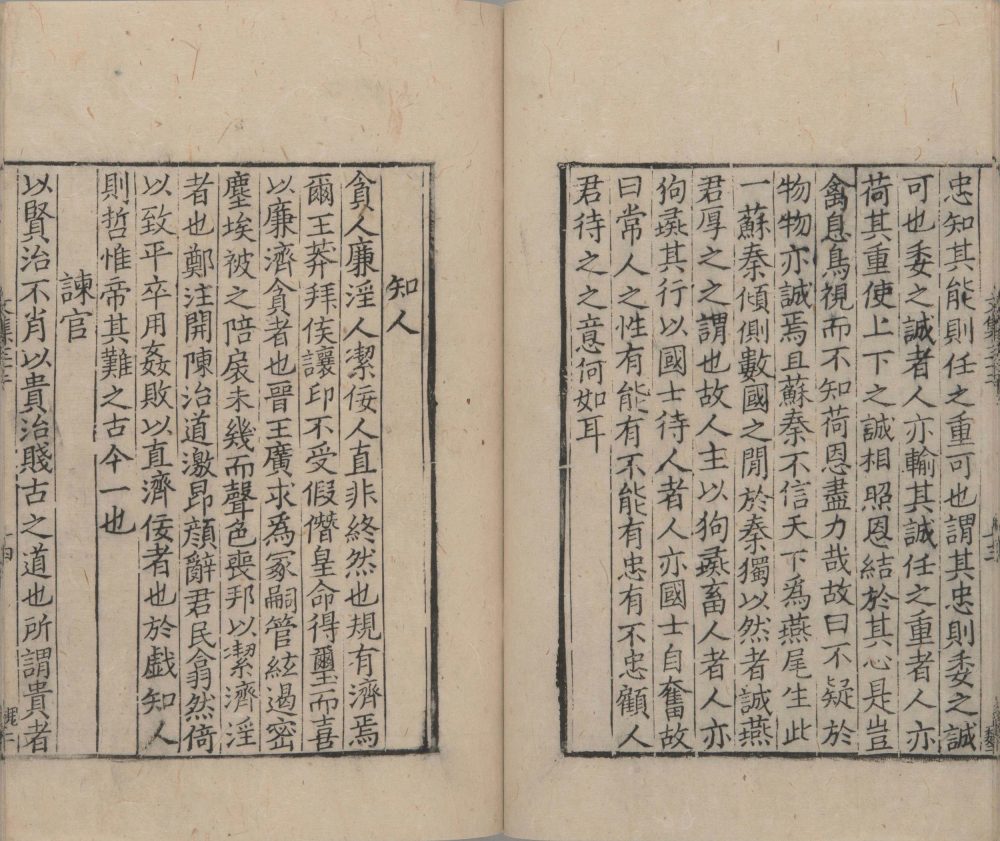 忠知其能則任之重可也謂其忠則委之誠
可也委之誠者人亦輸其誠任之重者人亦
荷其重使上下之誠相照恩結於其心是豈
禽息鳥視而不知荷恩盡力哉故曰不疑於
物物亦誠焉且蘇秦不信天下為燕尾生此
一蘇秦傾側數國之閒於秦獨以然者誠燕
君厚之之謂也故人主以狗彘畜人者人亦
狗彘其行以國士待人者人亦國士自奮故
曰常人之性有能有不能有忠有不忠顧人
君待之之意何如耳
知人
貪人廉淫人潔佞人直非終然也規有濟焉
爾王莽拜侯讓印不受假僭皇命得璽而喜
以廉濟貪者也晉王廣求爲冢嗣管絃遏密
塵埃被之陪扆未幾而聲色喪邦以潔濟淫
者也鄭注開陳治道激昂顔辭君民翕然倚
以致平卒用姦敗以直濟佞者也於戲知人
則哲惟帝其難之古今一也
諫官
以賢治不肖以貴治賤古之道也所謂貴者